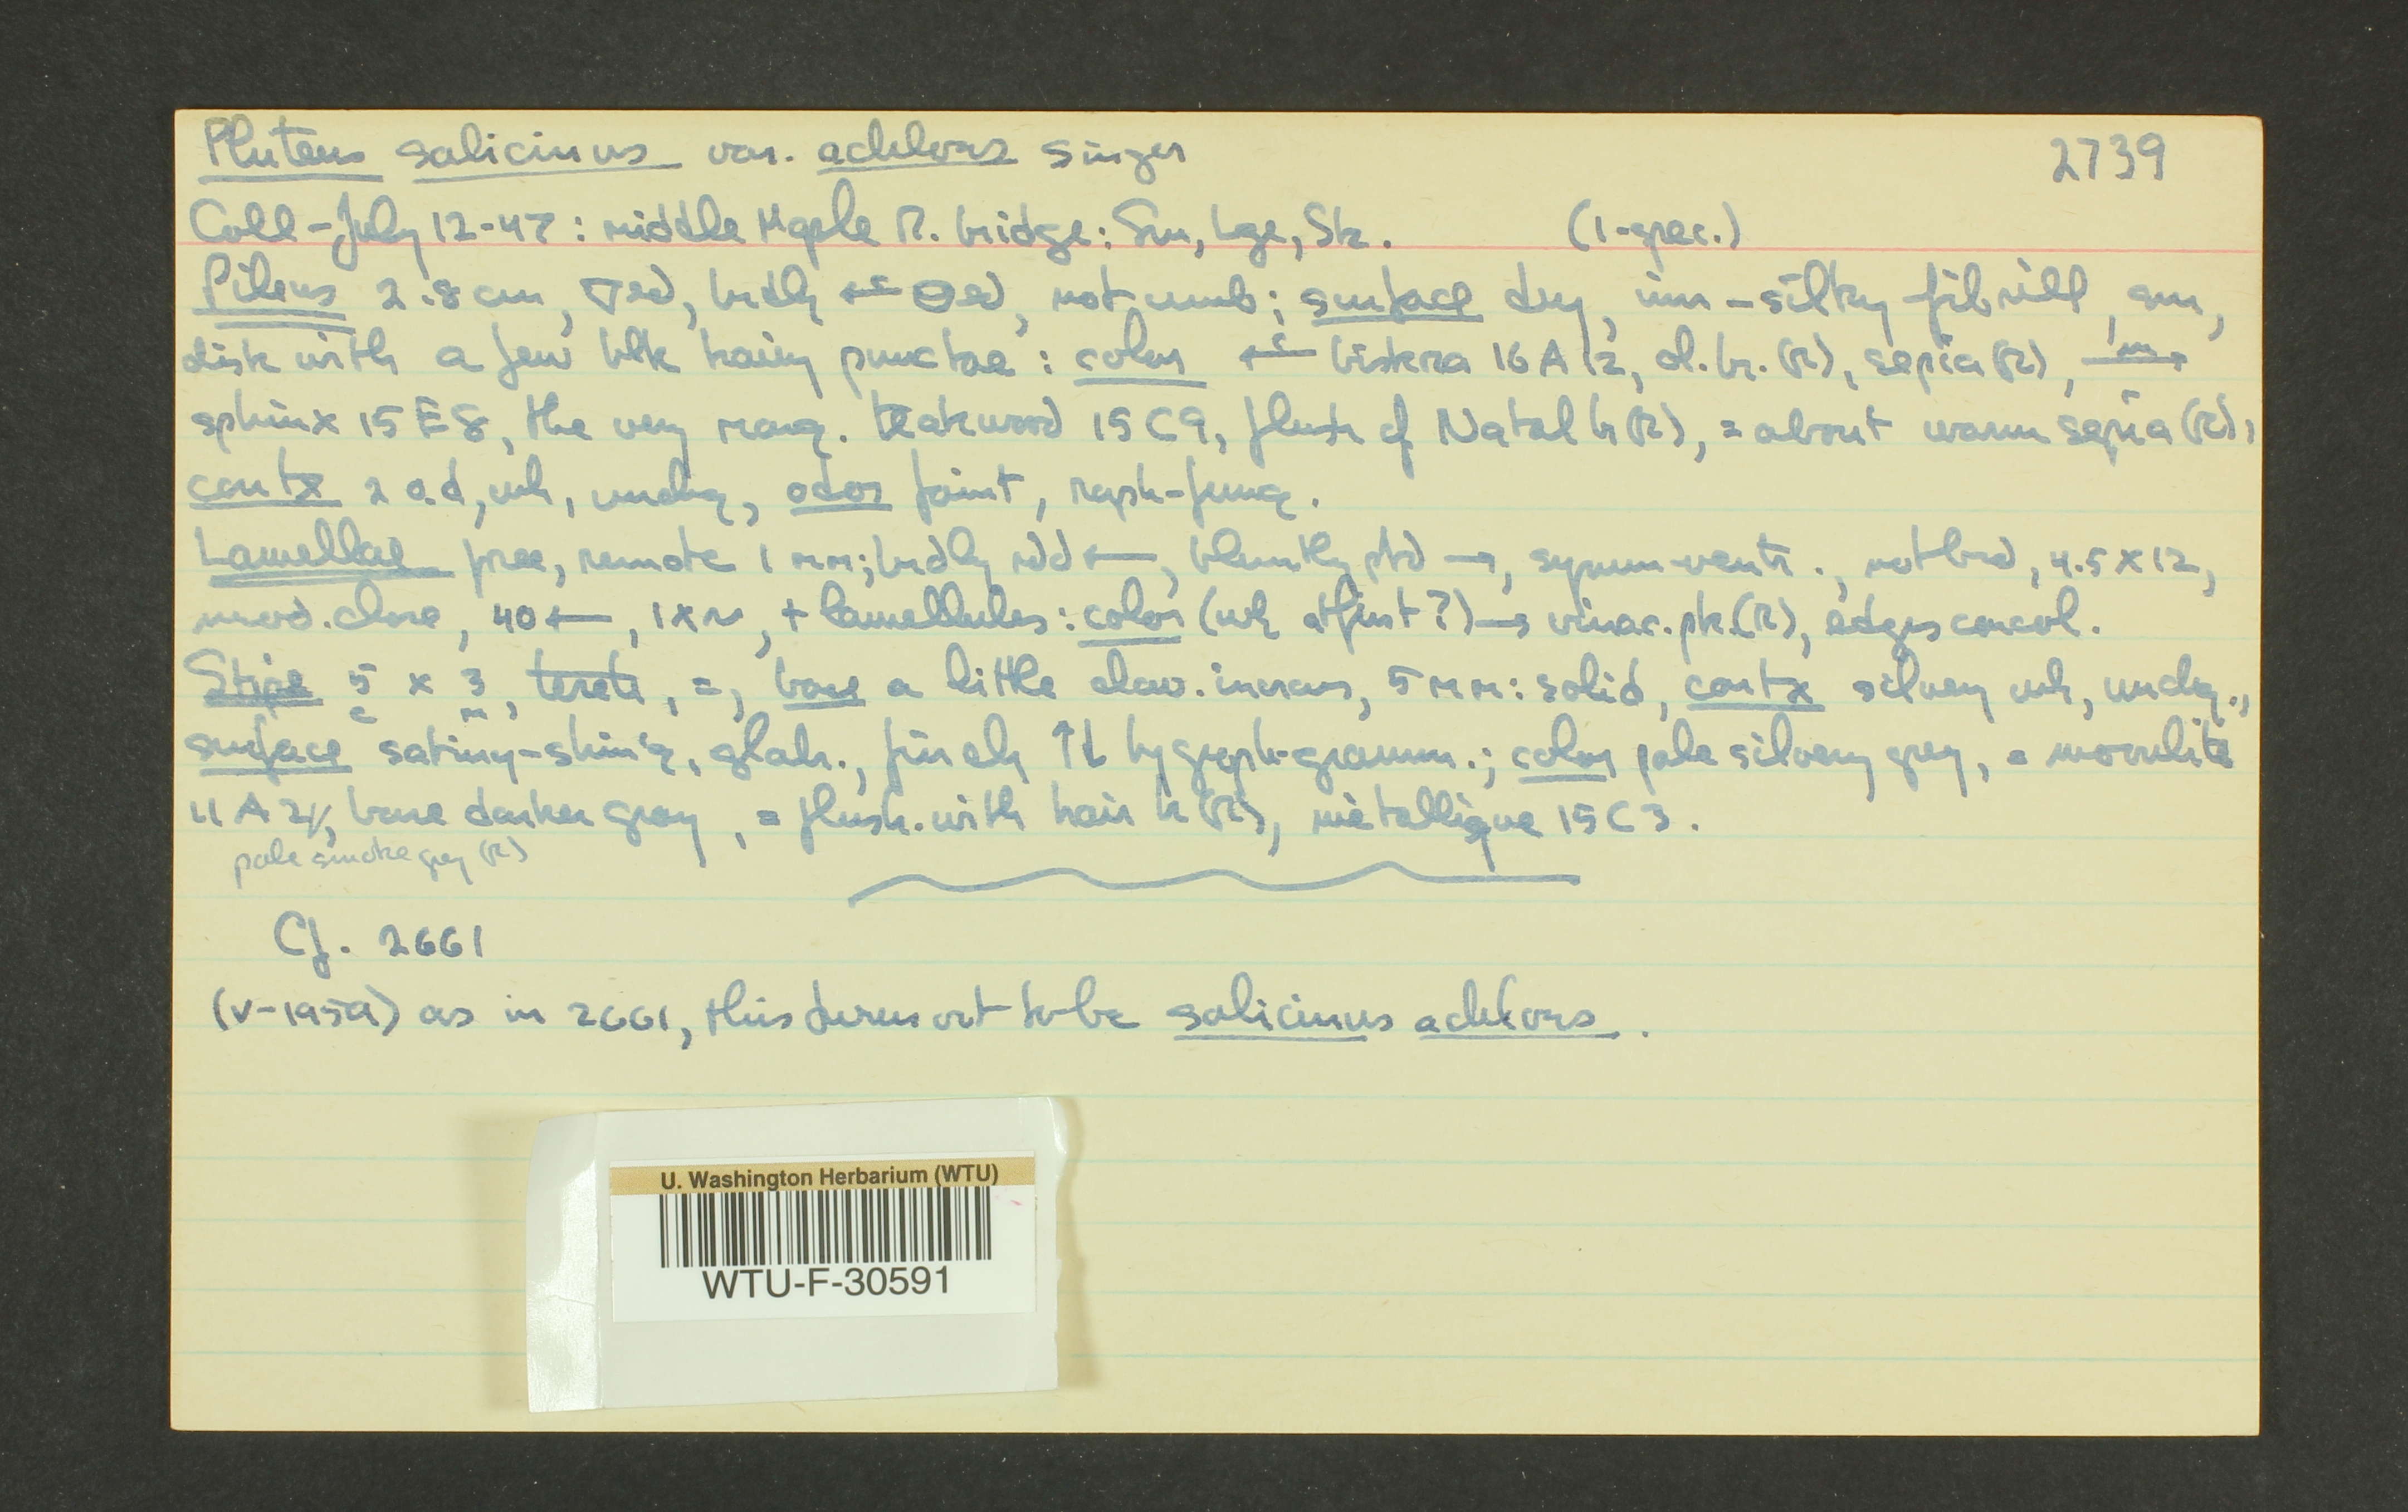 Pluteus salicinus var. achloes Singer 2739
Coll-July 12-47: middle Maple R. bridge: Sm, Lge, Sk. (1-spec.)
Pileus 2.8 cm, ▽ed, brdly ed, not umb; surface dry, inn-silky fibrill, sm,
disk with a few blk hairy punctae: color ← biskra 16 A 12, cl. br. (R), sepia (R), m→
sphinx 15 E 8, the very marg. teakwood 15 C 9, flush of Natal br (R), = about warm sepia (R);
contx 2 a.d, wh, unchg, odor faint, raph-fung.
Lamellae free, remote 1 mm; brdly rdd ←, bluntly ptd →, symm-ventr., not brd, 4.5 x 12,
mod. close, 40 ←, 1 x N, + lamellules: color (wh at first?) → vinac. pk. (R), edges concol.
Stipe 5 x 3, terete, =, base a little clav. incras, 5 mm: solid, contx silvery wh, unchg.,
c m
surface satiny-shin'g, glab., finely ↑↓ hygroph-gramm.; color pale silvery grey, = moonlite
11 A 2, base darker grey, = flush. with hair br (R), métallique 15 C 3.
pale smoke grey (R)
Cf. 2661
(V-1959) as in 2661, this turns out to be salicinus achloes.
U. Washington Herbarium (WTU)
WTU-F-30591